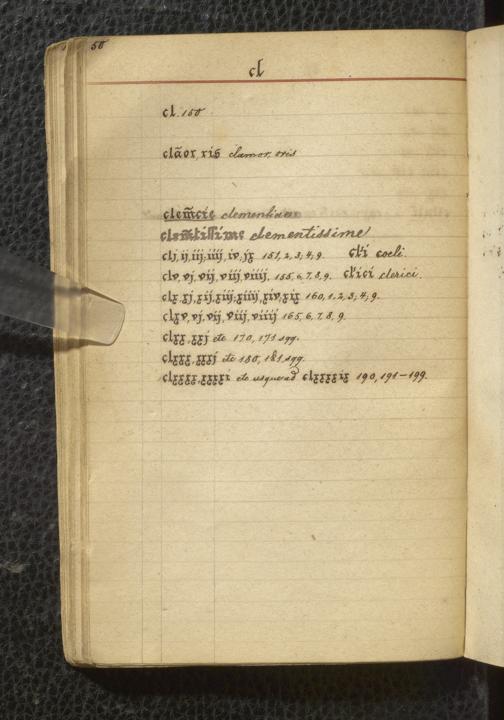 50
cl
cl. 150
clãor, ris clamor, oris
clem̃cie clementiae
clem̃tissime clementissime
clj, ij, iij, iiij, iv, jx 151, 2, 3, 4, 9. cl̃i coeli.
clv, vj, vij, viij, viiij, 155, 6, 7, 8, 9. cl̃ici clerici.
clx, xj, xij, xiij, xiiij, xiv, xix 160, 1. 2, 3, 4, 9.
clxv, vj, vij, viij, viiij 165, 6, 7, 8, 9.
clxx, xxj etc 170, 171 sqq.
clxxx, xxxj etc 180, 181 sqq.
clxxxx, xxxxi etc usque ad clxxxxix 190, 191–199.